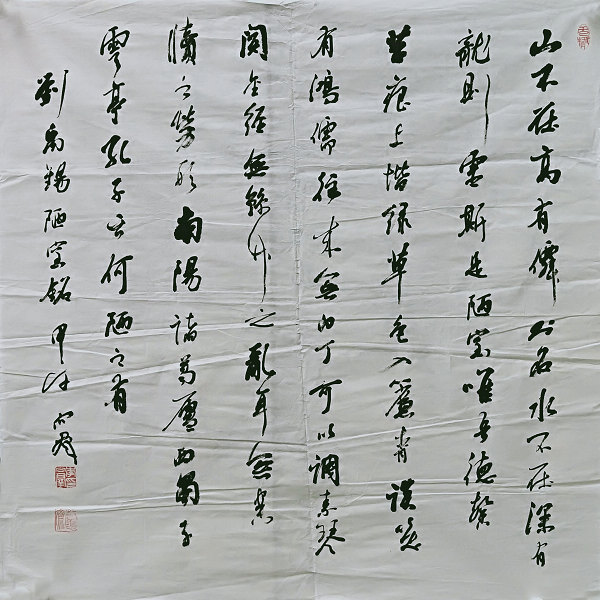 山不在高有僊則名水不在深有
龍則靈斯是陋室唯吾德馨
苔痕上階綠草色入簾青談笑
有鴻儒往來無白丁可以調素琴
閱金經無絲竹之亂耳無案
牘之勞形南陽諸葛廬西蜀子
雲亭孔子云何陋之有
劉禹錫陋室銘 甲